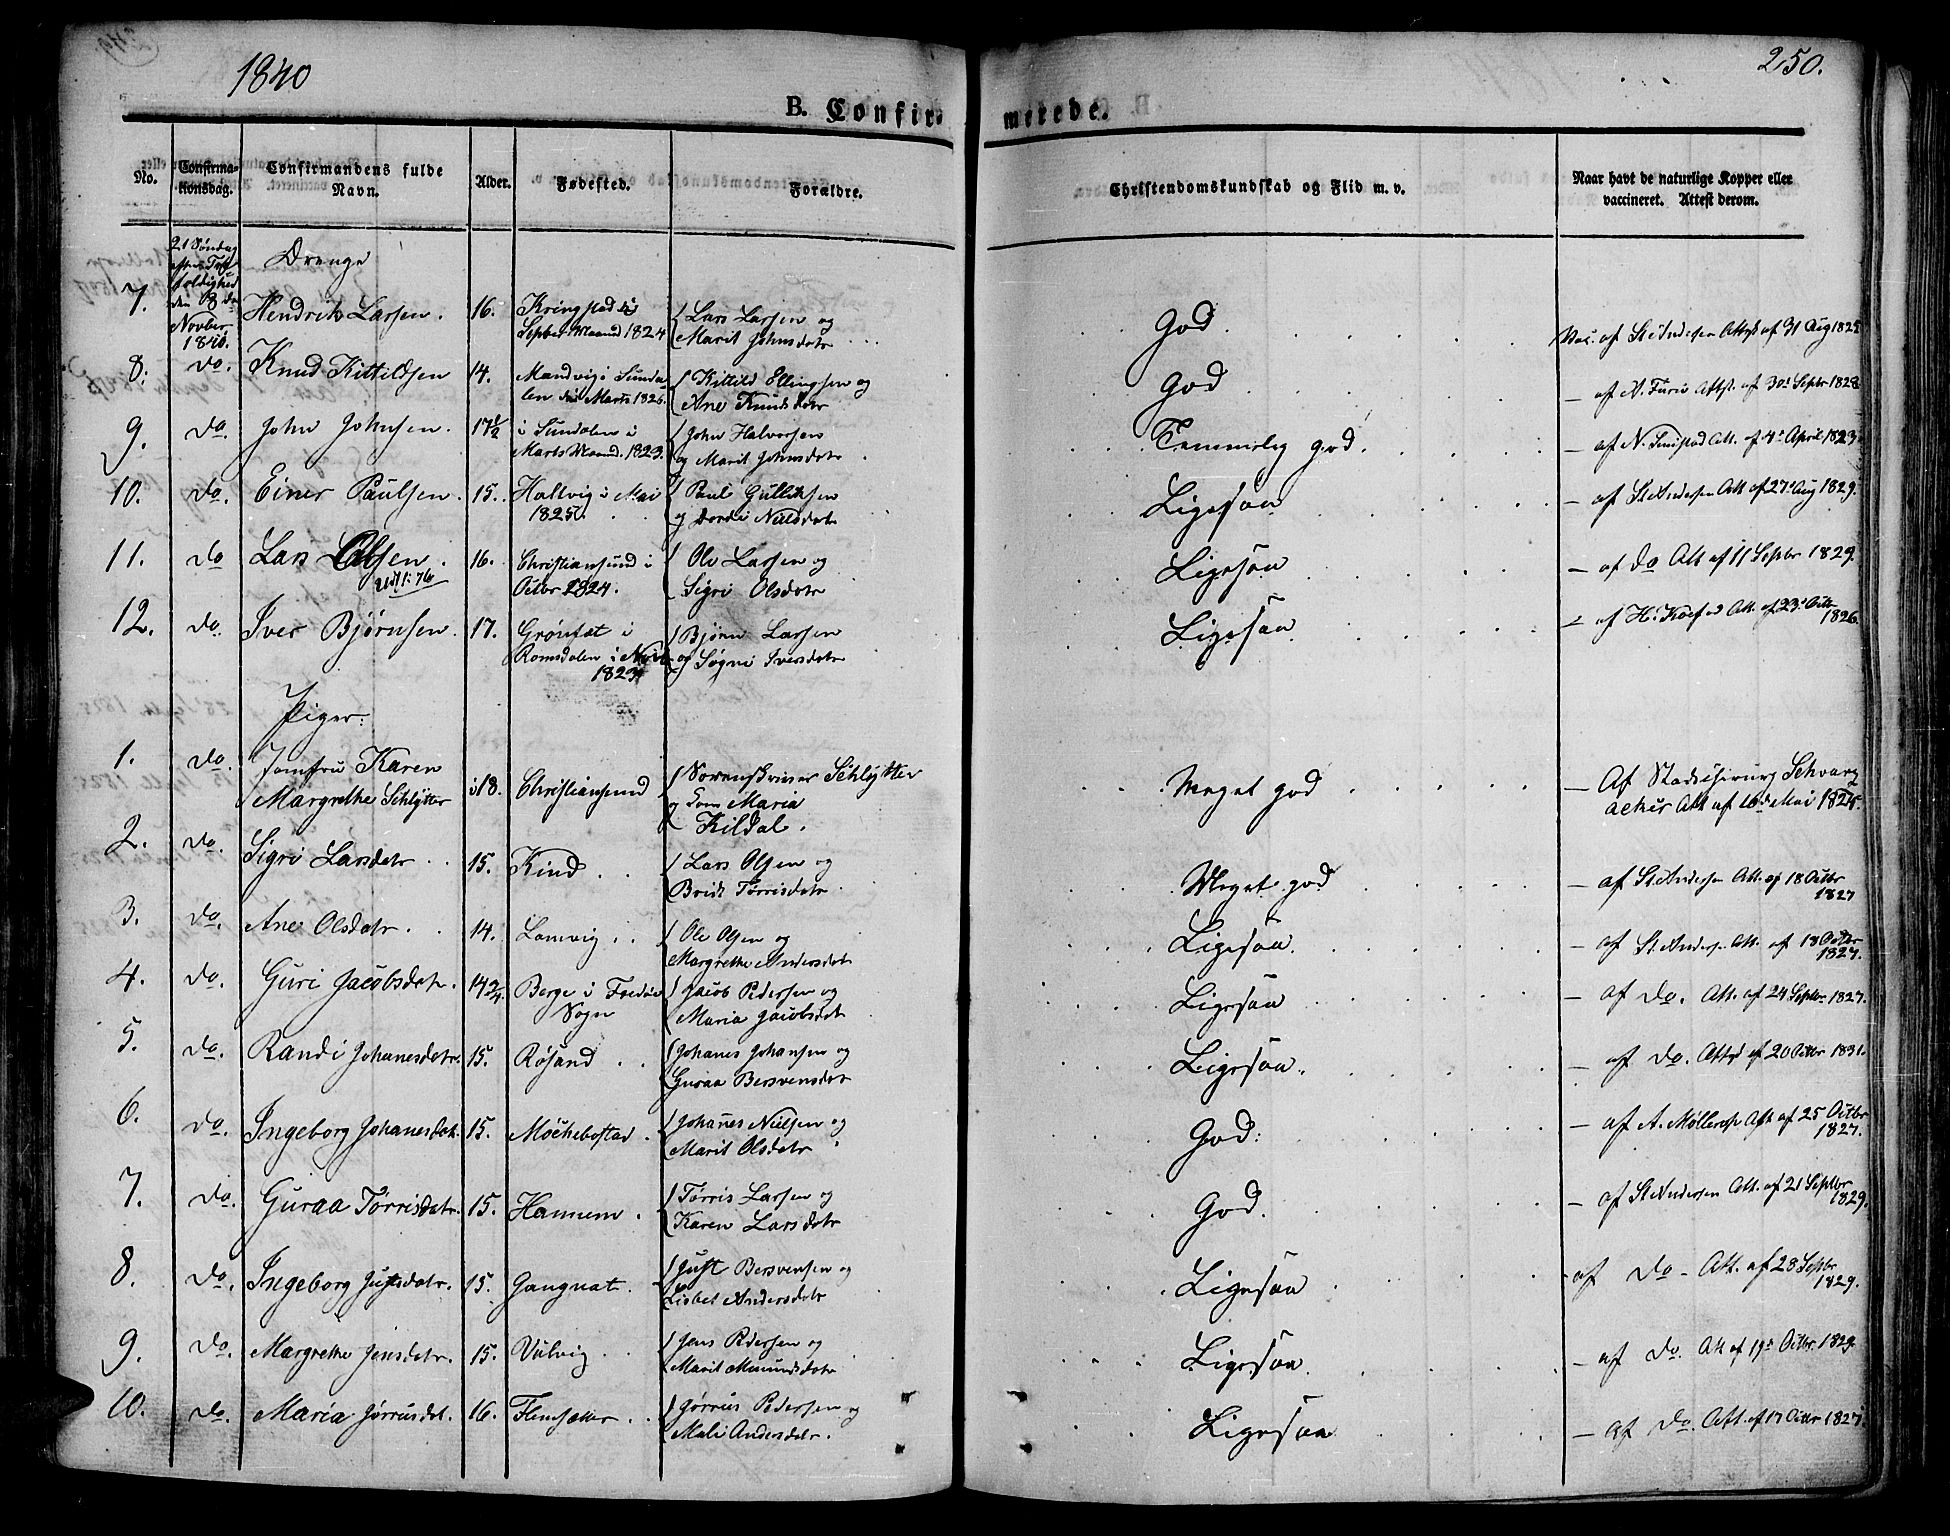 1840
250.
B. Confirmerede.
No.
Confirma-
tionsdag.
Confirmandens fulde
Navn.
Alder.
Fødested.
Forældre.
Christendomskundskab og Flid m. v.
Naar havt de naturlige Kopper eller
vaccineret. Attest derom.
21 Søndag
foldighed
den 8 de
Novber
1840.
Drenge
7. Hendrik Larsen. 16. Kringstad i Septber Maaned 1824 Lars Larsen og Marit Johnsdatr God Vac. af St. Andersen Attest af 31 Aug 1825
8. do. Knud Kittildsen 14. Mandvig i Sunda-
len i Marts 1826. Kittild Ellingsen og Ane Knudsdatr God – af N. Furu Attst. af 30. Septbr 1828
9. do. John Johnsen. 17½ i Sundalen i
Marts Maaned. 1823. John Halvorsen
og Marit Johnsdatr. Temmelig god. – af N. Att. af 4de April 1823
10. do. Einer Paulsen. 15. Hallvig i Mai
1825. Paul Gulliksen
og Dordi Nielsdatr Ligesaa – af St. Andersen Att. af 27. Aug 1829.
11. do Lars Olsen. 16. Christiansund i
Octbr 1824. Ole Larsen og
Sigri Olsdatr Ligesaa – af do Att af 11 Septbr 1829.
12. do. Iver Bjørnsen. 17. Grøntæt i
Romsdalen i Novb
1823. Bjørn Larsen
og Søgni Iversdatr Ligesaa – af H. Koefod Att. af 23. Octbr
1826.
Piger.
1. do. Jomfru Karen
Margrethe Schlytter i 18. Christiansund Sorenskriver Schlytter
og Maria
Kildal. Meget god – Af Stadschirurg Schvarz
acher Att af 16de Mai 1824.
2. do. Sigri Larsdatr 15. Kind Lars Olsen og
Brit Tørrisdatr Meget god – af St. Andersen Att. af 18 Octbr
1827
3. do. Ane Olsdatr. 14. Lomvig Ole Olsen og
Margrethe Andersdatr Ligesaa – af St. Andersen Att. af 18 Octbr
1827.
4. do. Guri Jacobsdatr. 14¾ Berge i Fredøe
Sogn Jacob Pedersen og
Maria Jacobsdatr Ligesaa – af do. Att. af 24 Septbr 1827.
5. do. Randi Johanesdatr. 15. Røsand Johanes Johansen og
Guraa Bersvensdatr Ligesaa – af do. Attest af 20 Octbr 1831.
6. do. Ingeborg Johanesdatr. 15. Møchebostad Johanes Nielsen og
Marit Olsdatr God: – af A. Møllerop Att af 25 Octbr
1827.
7. do. Guraa Tørrisdatr. 15. Hannem Tørris Larsen og
Karen Larsdatr God. – af St. Andersen Att. af 21 Septbr
1829.
8. do. Ingeborg Justsdatr. 15. Gangnat Just Bersvensen og
Lisbet Andersdatr Ligesaa – af do – Att. af 28 Septbr
1829.
9. do. Margrethe Jensdatr. 15. Vulvig Jens Pedersen og
Marit Amundsdatr Ligesaa – af do. Att af 19. Octbr 1829.
10. do. Maria Jørrusdatr. 16. Flemsætter Jørrus Pedersen og
Mali Andersdatr. Ligesaa – af do. Att. af 17 Octbr 1827.